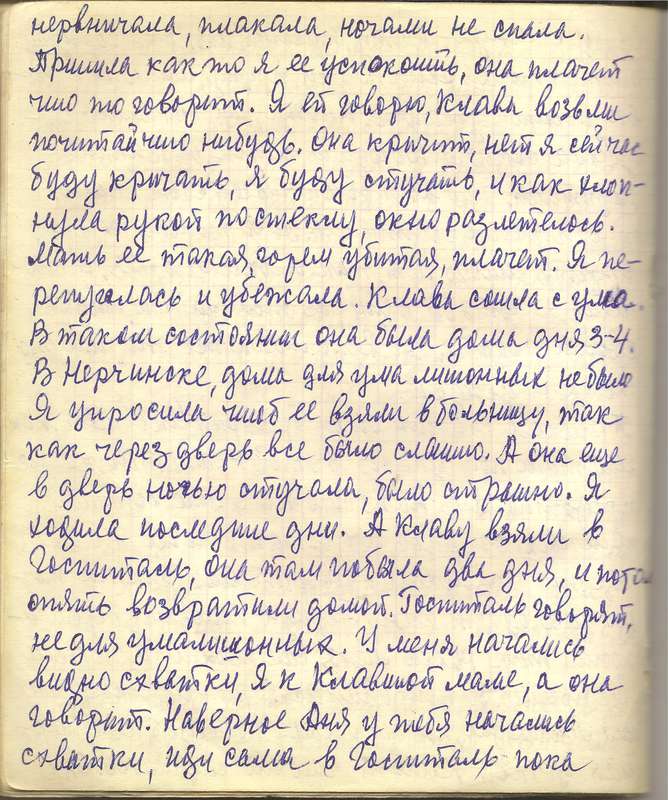 нервничала, плакала, ночами не спала.
Пришла как то я ее успокоить, она плачет
что то говорит. Я ей говорю, Клава возьми
почитай что нибудь. Она кричит, нет я сейчас
буду кричать, я буду стучать, и как хлоп-
нула рукой по стеклу, окно разлетелось.
Мать ее такая, горем убитая, плачет. Я пе-
репугалась и убежала. Клава сошла с ума.
В таком состоянии она была дома дня 3-4.
В Нерчинске, дома для ума лишонных не было
Я упросила чтоб ее взяли в больницу, так
как через дверь все было слышно. А она еще
в дверь ночью стучала, было страшно. Я
ходила последние дни. А Клаву взяли в
Госпиталь, она там побыла два дня, и потом
опять возвратили домой. Госпиталь говорят,
не для умалишонных. У меня начались
видно схватки, я к Клавиной маме, а она
говорит. Наверное Аня у тебя начались
схватки, иди сама в Госпиталь пока